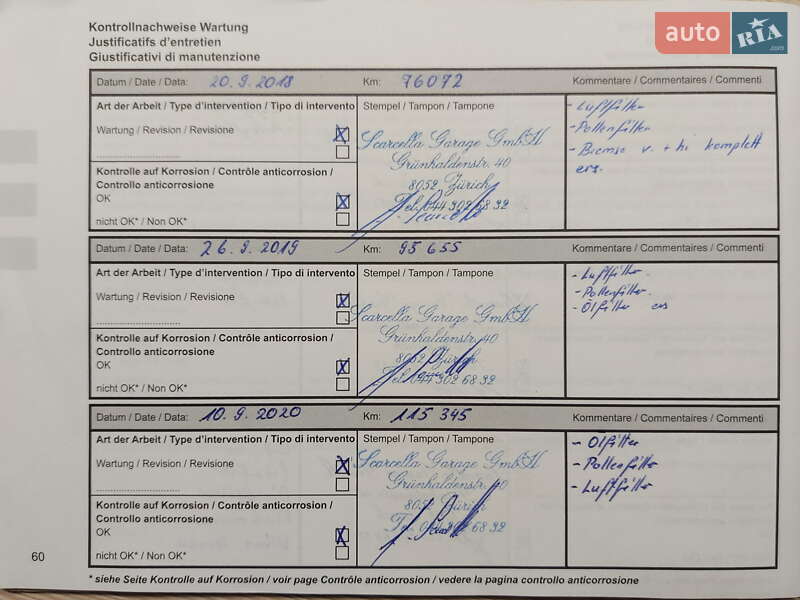 Kontrollnachweise Wartung
Justificatifs d'entretien
Giustificativi di manutenzione
auto RIA .com
Datum / Date / Data: 20.9.2018 Km: 76072 Kommentare / Commentaires / Commenti
Art der Arbeit / Type d'intervention / Tipo di intervento Stempel / Tampon / Tampone
Wartung / Revision / Revisione
Scarcella Garage GmbH
Grünhaldenstr. 40
8052 Zürich
Tel. 044 302 68 92
- Luftfilter
- Pollenfilter
- Bremse v. + hi komplett
ers.
Kontrolle auf Korrosion / Contrôle anticorrosion /
Controllo anticorrosione
OK
nicht OK* / Non OK*
Datum / Date / Data: 26.9.2019 Km: 95 655 Kommentare / Commentaires / Commenti
Art der Arbeit / Type d'intervention / Tipo di intervento Stempel / Tampon / Tampone
Wartung / Revision / Revisione
Scarcella Garage GmbH
Grünhaldenstr. 40
8052 Zürich
Tel. 044 302 68 92
- Luftfilter
- Pollenfilter.
- Ölfilter ers
Kontrolle auf Korrosion / Contrôle anticorrosion /
Controllo anticorrosione
OK
nicht OK* / Non OK*
Datum / Date / Data: 10.9.2020 Km: 115 345 Kommentare / Commentaires / Commenti
Art der Arbeit / Type d'intervention / Tipo di intervento Stempel / Tampon / Tampone
Wartung / Revision / Revisione
Scarcella Garage GmbH
Grünhaldenstr. 40
8052 Zürich
68 92
- Ölfilter
- Pollenfilter
- Luftfilter
Kontrolle auf Korrosion / Contrôle anticorrosion /
Controllo anticorrosione
OK
nicht OK* / Non OK*
60
* siehe Seite Kontrolle auf Korrosion / voir page Contrôle anticorrosion / vedere la pagina controllo anticorrosione